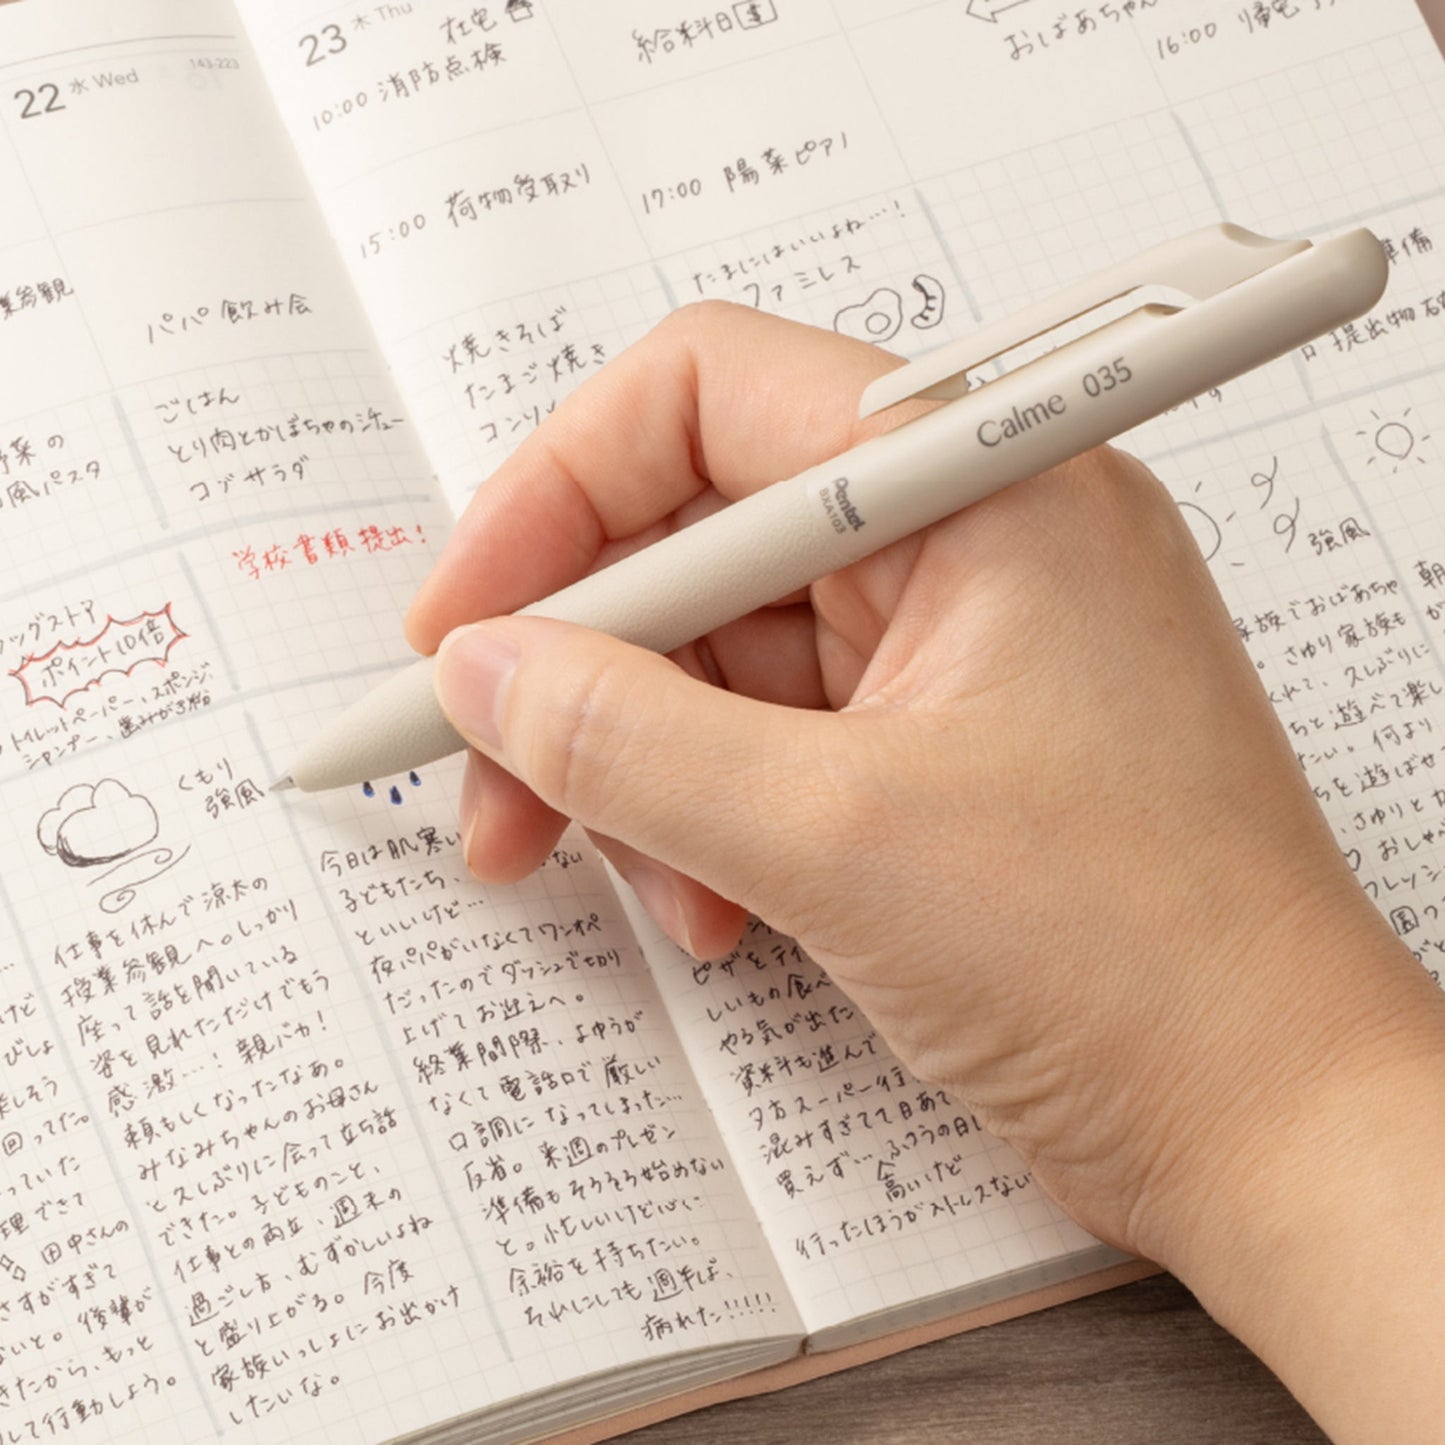 22 水 Wed
143-223
23 木 Thu
在宅
10:00 消防点検
15:00 荷物受取り
給料日
17:00 陽菜ピアノ
おばあちゃん
16:00 帰宅
業参観
パパ 飲み会
たまにはいいよね…!
ファミレス
準備
提出物
野菜の
風パスタ
ごはん
とり肉とかぼちゃのシチュー
コブサラダ
焼きそば
たまご焼き
コンソ
学校書類提出!
ラッグストア
ポイント10倍
トイレットペーパー、スポンジ、
シャンプー、歯みがき粉
Calme 035
Pentel
BXA103
くもり
強風
強風
仕事を休んで涼太の
授業参観へ。しっかり
座って話を聞いている
姿を見れただけでもう
感激…! 親バカ!
頼もしくなったなあ。
みなみちゃんのお母さん
と久しぶりに会って立ち話
できた。子どものこと、
仕事との両立、週末の
過ごし方、むずかしいよね
と盛り上がる。今度
家族いっしょにお出かけ
したいな。
今日は肌寒い
ない
子どもたち、
といいけど…
夜パパがいなくてワンオペ
だったのでダッシュで切り
上げてお迎えへ。
終業間際、よゆうが
なくて電話口で厳しい
口調になってしまった…
反省。来週のプレゼン
準備もそろそろ始めない
と。忙しいけど心に
余裕を持ちたい。
それにしても週半ば、
疲れた!!!!!
ピザをテイ
しいもの食べ
やる気が出た
資料も進んで
夕方スーパー行
混みすぎてて目あて
買えず… ふつうの日
高いけど
行ったほうがストレスない
家族でおばあちゃ
。さゆり家族も
くれて、久しぶりに
ちと遊べて楽し
たい。何より
ちを遊ばせ
、さゆりとカ
おしゃべ
フレッシ
園
朝
が
けど
びしょ
楽しそう
回ってた。
っていた
理できて
田中さんの
さすがすぎて
ないと。後輩が
きたから、もっと
して行動しよう。